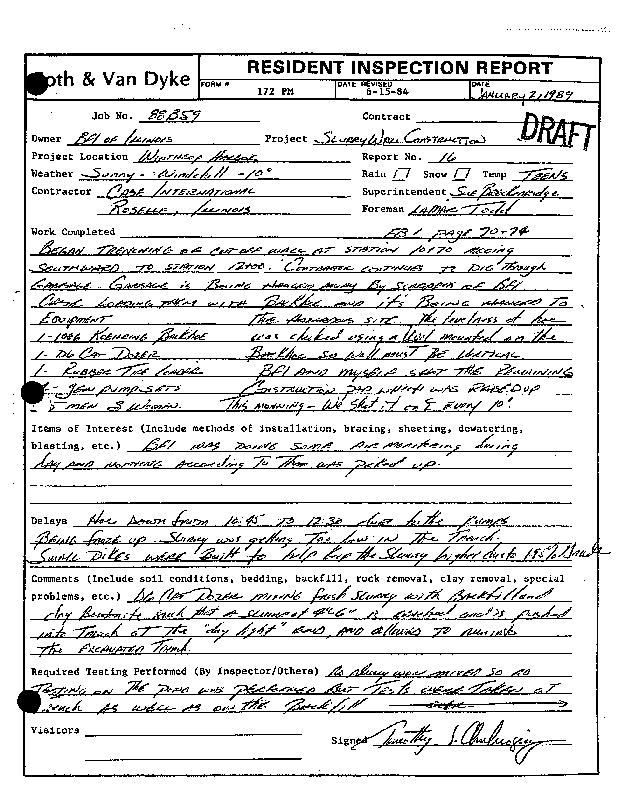 oth & Van Dyke
RESIDENT INSPECTION REPORT
FORM # 172 PM
DATE REVISED 6-15-84
DATE JANUARY 2, 1989
DRAFT
Job No. 88B59 Contract
Owner BFI OF ILLINOIS Project SLURRY WALL CONSTRUCTION
Project Location WINTHROP HARBOR Report No. 16
Weather Sunny - Windchill -10° Rain Snow Temp TEENS
Contractor CASE INTERNATIONAL Superintendent Sue
ROSELLE, ILLINOIS Foreman LAMAR Todd
Work Completed PAGE 70-74
BEGAN TRENCHING OF CUT OFF WALL AT STATION 10+70
SOUTHWARD TO STATION 12+00. CONTRACTOR CONTINUES TO DIG Through
GARBAGE. GARBAGE IS BEING HAULED AWAY BY SCRAPERS OF BFI
LOADING THEM WITH BACKHOE AND it's BEING HAULED TO
EQUIPMENT THE HAZARDOUS SITE. The of hoe
1- BACKHOE was checked using a level mounted on the
1- D6 CAT DOZER BACKHOE SO wall must BE VERTICAL
1- RUBBER TIRE LOADER BFI AND MYSELF SHOT THE
PUMP SETS CONSTRUCTION WHICH WAS
5 MEN 3 WOMAN THIS MORNING - WE SHOT it ON EVERY 10'.
Items of Interest (Include methods of installation, bracing, sheeting, dewatering,
blasting, etc.) BFI WAS DOING SOME AIR MONITORING during
day AND NOTHING ACCORDING TO THEM WAS PICKED UP.
Delays HOE DOWN FROM 10:45 TO 12:30 due to the PUMPS
BEING FROZE UP. SLURRY WAS getting TOO LOW IN THE TRENCH.
SMALL DIKES WERE BUILT TO help keep the SLURRY higher due to
Comments (Include soil conditions, bedding, backfill, rock removal, clay removal, special
problems, etc.) D6 CAT DOZER MIXING fresh SLURRY with BACKFILL and
dry Bentonite such that A SLUMP of 4"-6" is and is pushed
into TRENCH AT THE "day light" END, AND ALLOWED TO
THE EXCAVATED TRENCH.
Required Testing Performed (By Inspector/Others) No slurry was MIXED SO NO
TESTING ON THE POND WAS PERFORMED BUT TESTS WERE TAKEN AT
TRENCH AS WELL AS ON THE BACKFILL
Visitors
Signed Timothy J.